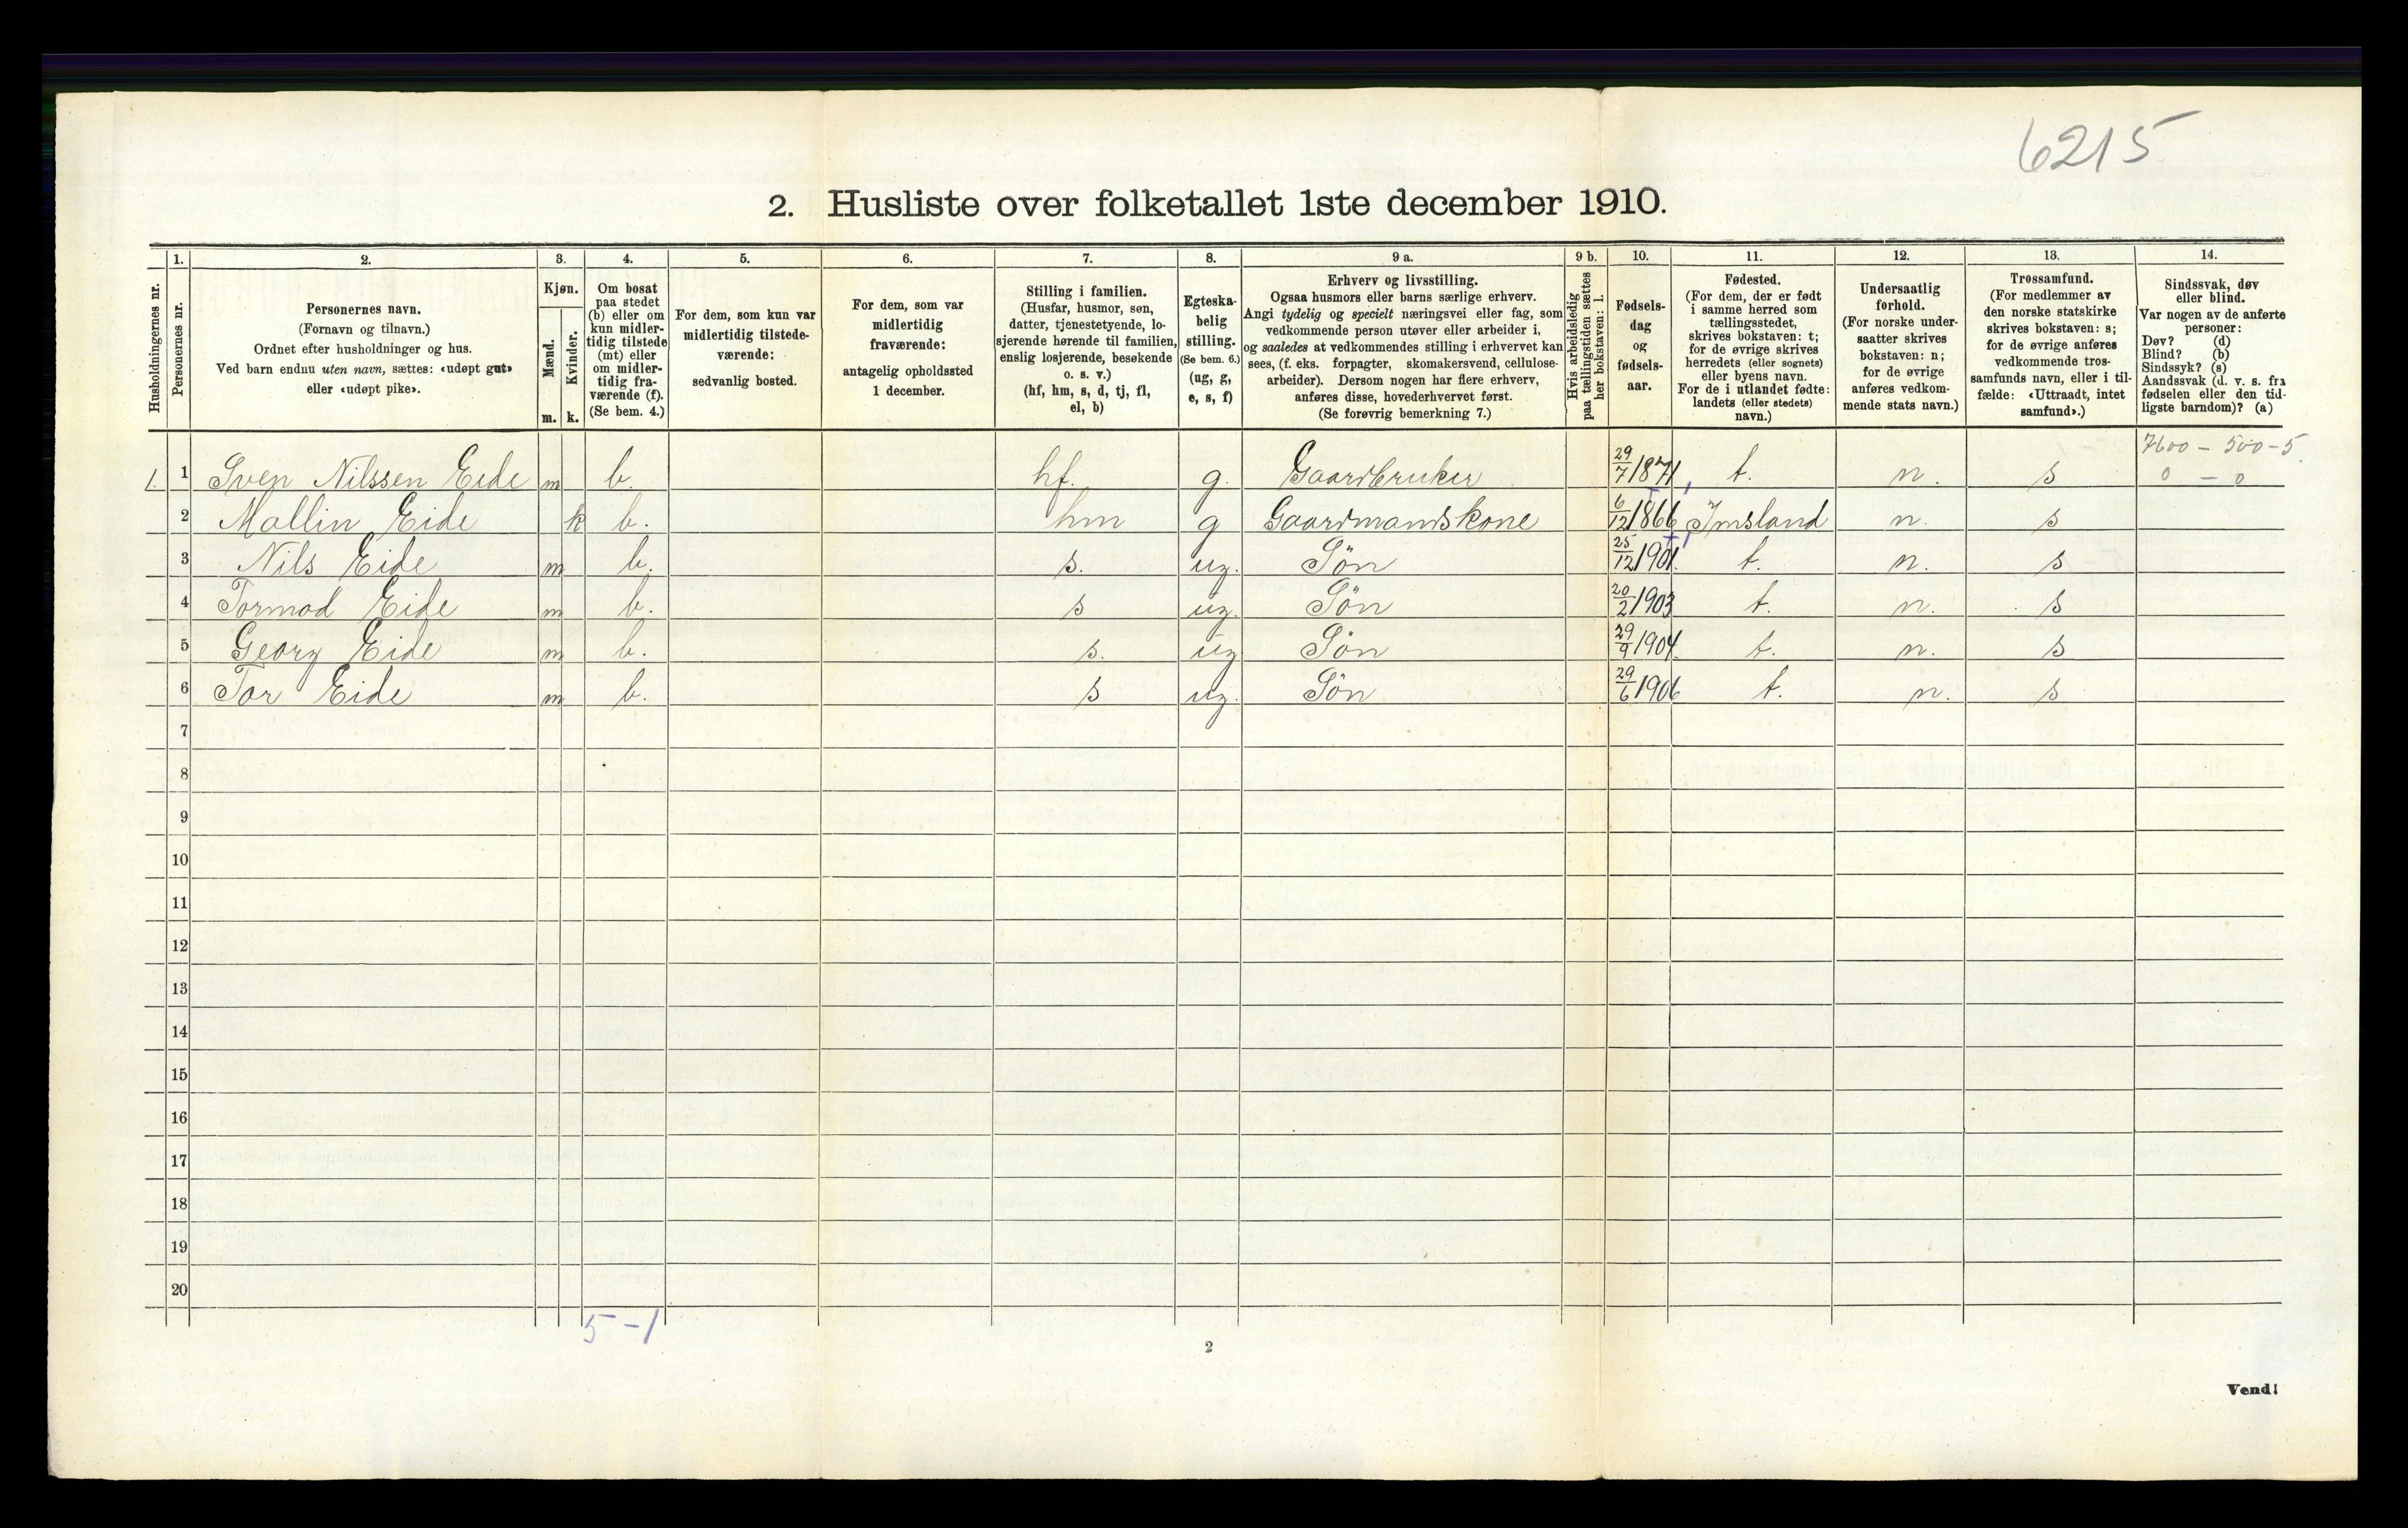 6215
2. Husliste over folketallet 1ste december 1910.
Husholdningernes nr.
1. Personernes nr.
2. Personernes navn.
(Fornavn og tilnavn.)
Ordnet efter husholdninger og hus.
Ved barn endnu uten navn, sættes: «udøpt gut»
eller «udøpt pike».
3. Kjøn.
Mænd. m.
Kvinder. k.
4. Om bosat
paa stedet
(b) eller om
kun midler-
tidig tilstede
(mt) eller
om midler-
tidig fra-
værende (f).
(Se bem. 4.)
5. For dem, som kun var
midlertidig tilstede-
værende:
sedvanlig bosted.
6. For dem, som var
midlertidig
fraværende:
antagelig opholdssted
1 december.
7. Stilling i familien.
(Husfar, husmor, søn,
datter, tjenestetyende, lo-
sjerende hørende til familien,
enslig losjerende, besøkende
o. s. v.)
(hf, hm, s, d, tj, fl,
el, b)
8. Egteska-
belig
stilling.
(Se bem. 6.)
(ug, g,
e, s, f)
9 a. Erhverv og livsstilling.
Ogsaa husmors eller barns særlige erhverv.
Angi tydelig og specielt næringsvei eller fag, som
vedkommende person utøver eller arbeider i,
og saaledes at vedkommendes stilling i erhvervet kan
sees, (f. eks. forpagter, skomakersvend, cellulose-
arbeider). Dersom nogen har flere erhverv,
anføres disse, hovederhvervet først.
(Se forøvrig bemerkning 7.)
9 b. Hvis arbeidsledig
paa tællingstiden sættes
her bokstaven: l.
10. Fødsels-
dag
og
fødsels-
aar.
11. Fødested.
(For dem, der er født
i samme herred som
tællingsstedet,
skrives bokstaven: t;
for de øvrige skrives
herredets (eller sognets)
eller byens navn.
For de i utlandet fødte:
landets (eller stedets)
navn.)
12. Undersaatlig
forhold.
(For norske under-
saatter skrives
bokstaven: n;
for de øvrige
anføres vedkom-
mende stats navn.)
13. Trossamfund.
(For medlemmer av
den norske statskirke
skrives bokstaven: s;
for de øvrige anføres
vedkommende tros-
samfunds navn, eller i til-
fælde: «Uttraadt, intet
samfund».)
14. Sindssvak, døv
eller blind.
Var nogen av de anførte
personer:
Døv? (d)
Blind? (b)
Sindssyk? (s)
Aandssvak (d. v. s. fra
fødselen eller den tid-
ligste barndom)? (a)
7600 – 500 – 5.
1. 1 Sven Nilssen Eide m b. hf. g. Gaardbruker 29/7 1871 t. n. s 0 – 0
2 Mallin Eide k b. hm g Gaardmandskone 6/12 1866 Imsland n. s
3 Nils Eide m b. s. ug. Søn 25/12 1901. t. n. s
4 Tormod Eide m b. s ug. Søn 20/2 1903 t. n. s
5 Georg Eide m b. s. ug Søn 29/9 1904. t. n. s
6 Tor Eide m b. s ug. Søn 29/6 1906 t. n. s
7
8
9
10
11
12
13
14
15
16
17
18
19
20
5 – 1
2
Vend!